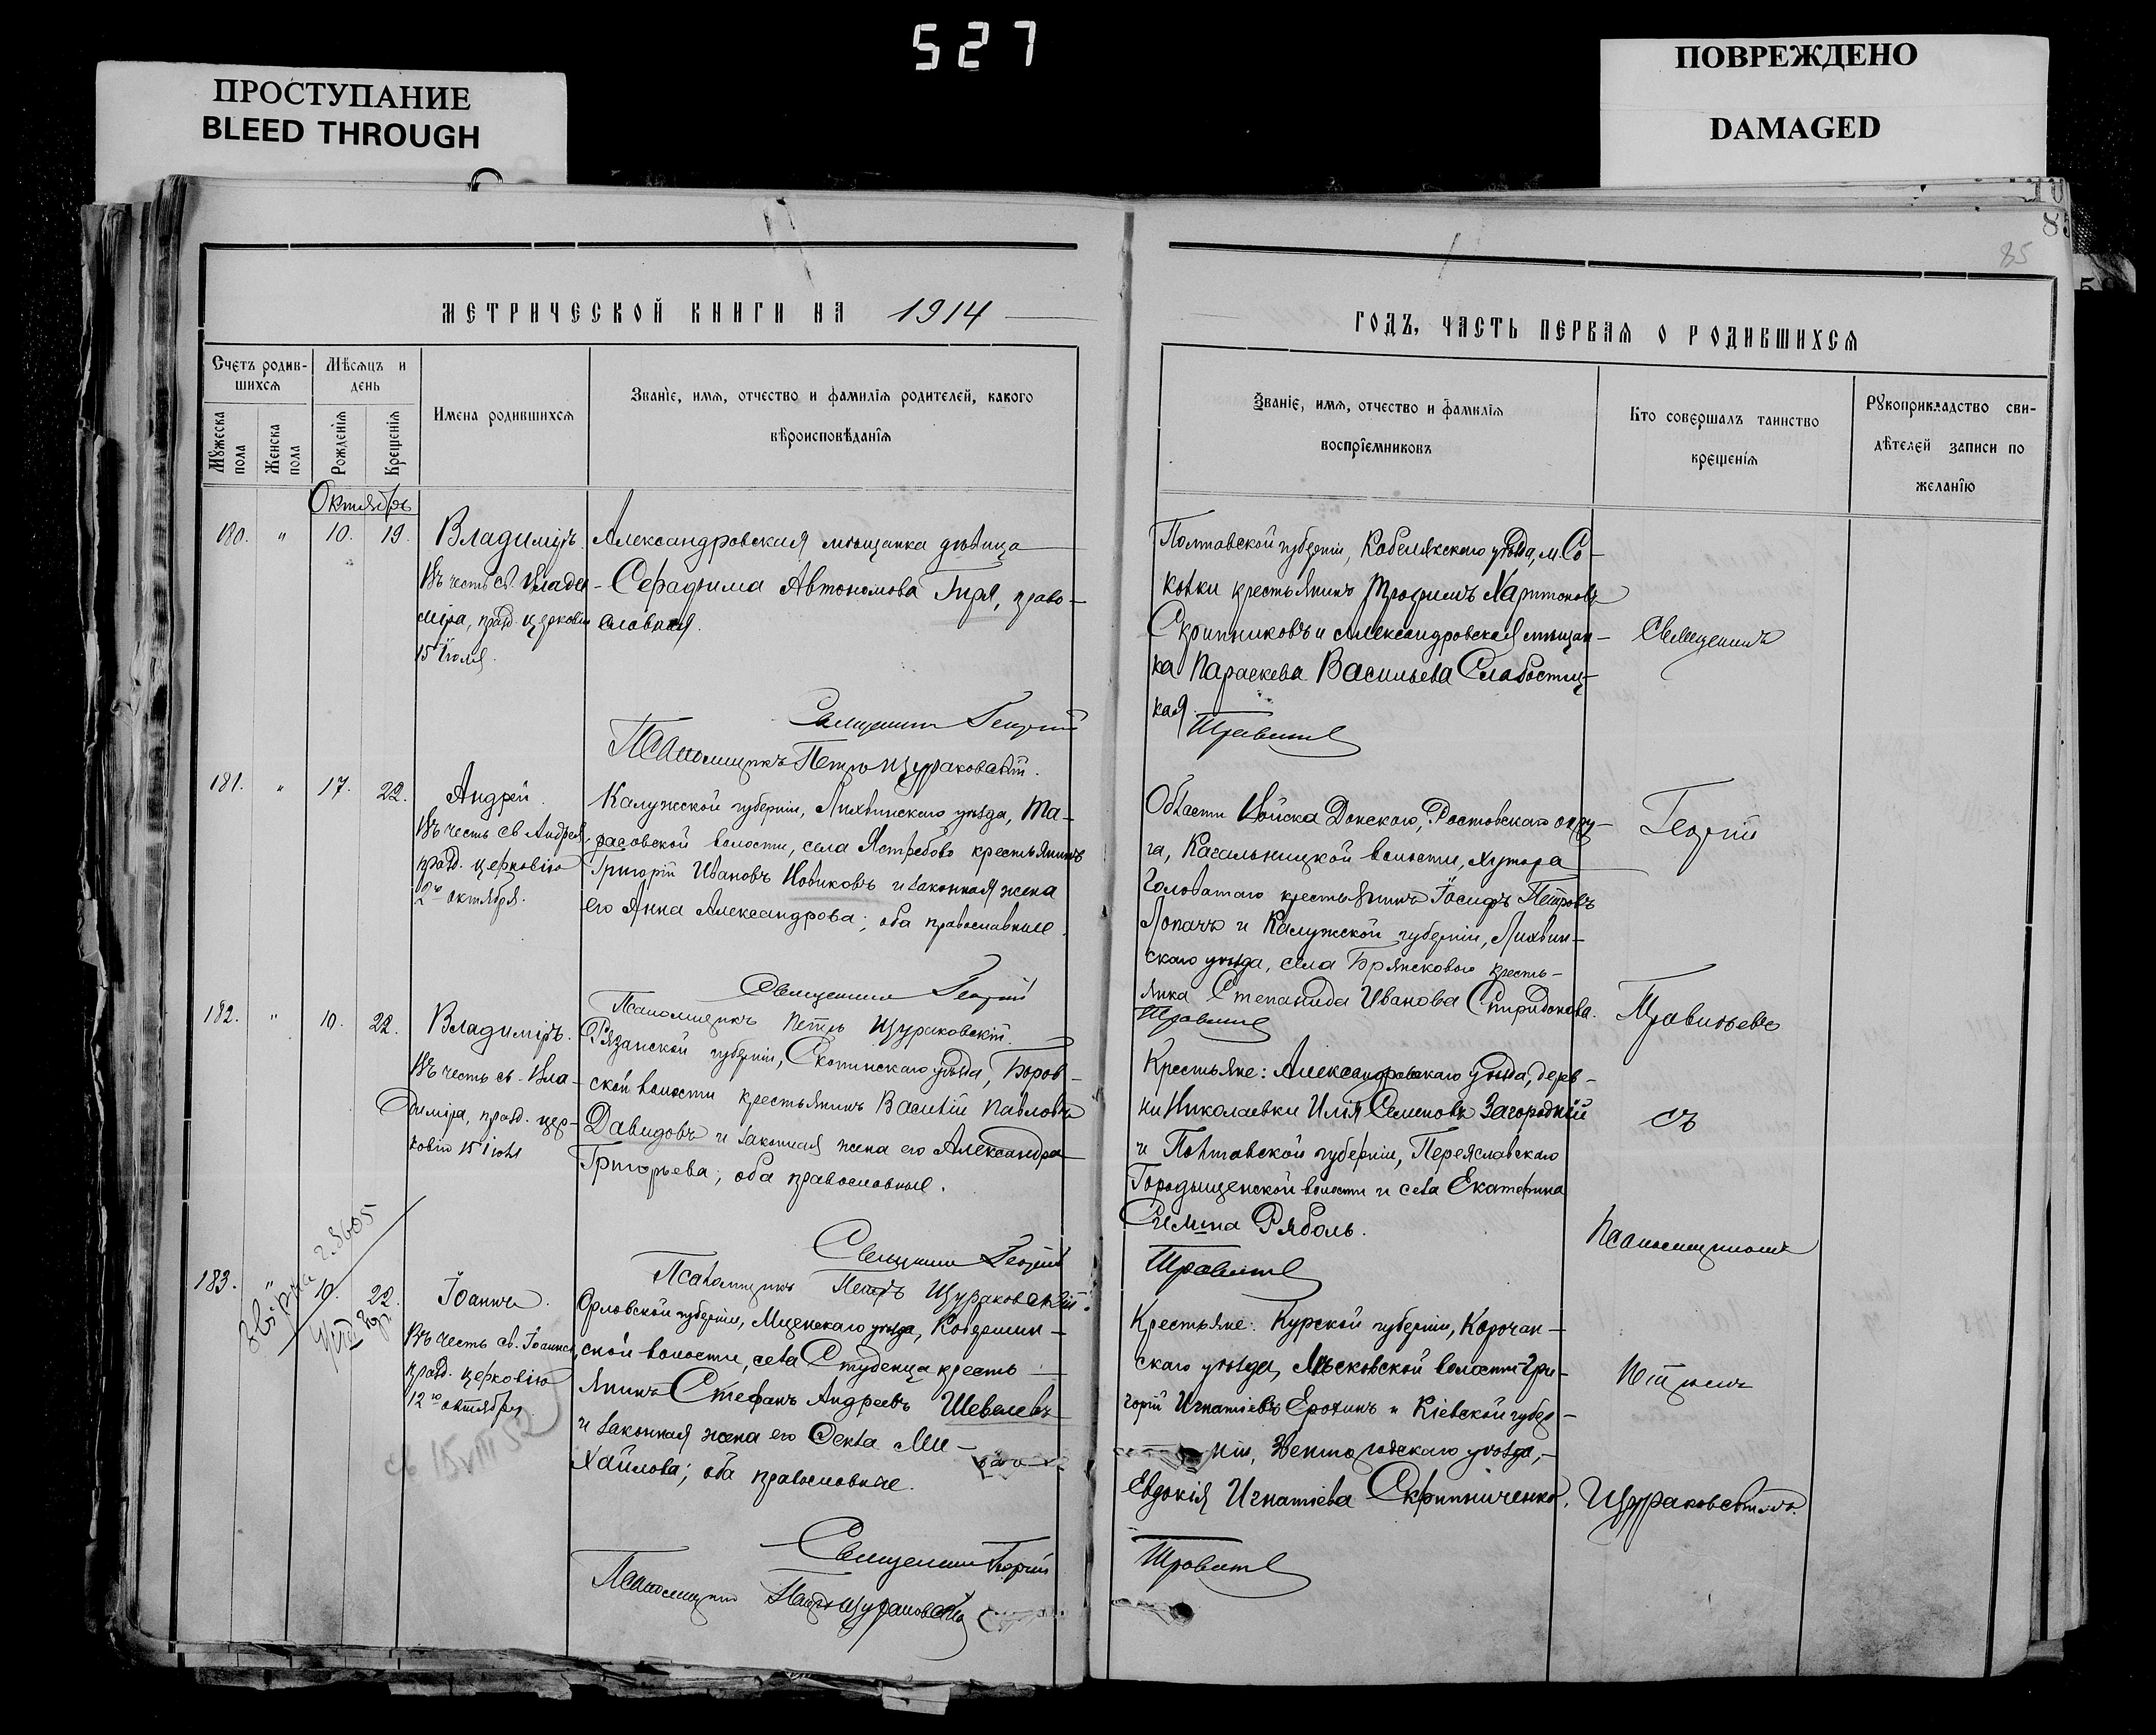 527
ПРОСТУПАНИЕ
BLEED THROUGH
ПОВРЕЖДЕНО
DAMAGED
85
85
МЕТРИЧЕСКОЙ КНИГИ НА 1914
ГОДЪ, ЧАСТЬ ПЕРВАЯ О РОДИВШИХСЯ
Счетъ родив-
шихся
Мѣсяцъ и
день
Мужеска
пола
Женска
пола
Рожденія
Крещенія
Имена родившихся
Званіе, имя, отчество и фамилія родителей, какого
вѣроисповѣданія
Званіе, имя, отчество и фамилія
воспріемниковъ
Кто совершалъ таинство
крещенія
Рукоприкладство сви-
дѣтелей записи по
желанію
Октябрь
180. " 10. 19.
Владиміръ.
Въ честь св. Влади-
міра, празд. церковію
15 Іюля.
Александровская мѣщанка дѣвица
Серафима Автономова Гиря, право-
славная.
Священникъ Георгій
Псаломщикъ Петръ Щураковскій.
Полтавской губерніи, Кобелякскаго уѣзда, м. Со-
колки крестьянинъ Трофимъ Харитоновъ
Скрипниковъ и Александровская мѣщан-
ка Параскева Васильева Слабостиц-
кая.
181. " 17. 22.
Андрей.
Въ честь св. Андрея,
празд. церковію
2го октября.
Калужской губерніи, Лихвинскаго уѣзда, Та-
расовской волости, села Ястребово крестьянинъ
Григорій Ивановъ Новиковъ и законная жена
его Анна Александрова; оба православные.
Священникъ Георгій
Псаломщикъ Петръ Щураковскій.
Области Войска Донского, Ростовскаго окру-
га, Кагальницкой волости, хутора
Головатаго крестьянинъ Іосифъ Петровъ
Лопачъ и Калужской губерніи, Лихвин-
скаго уѣзда, села Брянсково кресть-
янка Степанида Иванова Спиридонова.
182. " 10. 22.
Владиміръ.
Въ честь св. Вла-
диміра, празд. цер-
ковію 15 іюля
Рязанской губерніи, Скопинскаго уѣзда, Боров-
ской волости крестьянинъ Василій Павловъ
Давидовъ и законная жена его Александра
Григорьева; оба православные.
Священникъ Георгій
Псаломщикъ Петръ Щураковскій.
Крестьяне: Александровскаго уѣзда, дерев-
ни Николаевки Илія Семеновъ Загородній
и Полтавской губерніи, Переяславскаго
Городищенской волости и села Екатерина
Ряболь.
183. " 10. 22.
Іоаннъ.
Въ честь св. Іоанна,
празд. церковію
12го октября.
Орловской губерніи, Мценскаго уѣзда,
ской волости, села Студенца кресть-
янинъ Стефанъ Андреевъ Шевелевъ
и законная жена его Фекла Ми-
хайлова; оба православные.
Священникъ Георгій
Псаломщикъ Петръ Щураковскій
Крестьяне: Курской губерніи, Корочан-
скаго уѣзда, волости Гри-
горій Игнатіевъ Ерохинъ и Кіевской губер-
ніи, уѣзда,
Евдокія Игнатіева Скрипниченко.
Священникъ
Георгій
съ
Псаломщикомъ
Петромъ
Щураковскимъ.